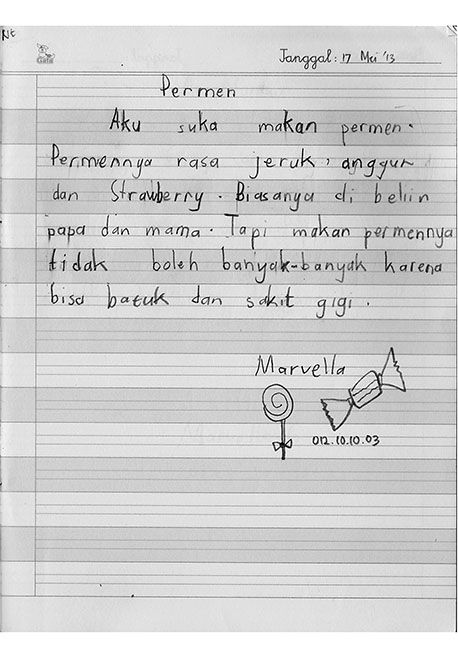 Gata
Tanggal: 17 Mei '13
Permen
Aku suka makan permen.
Permennya rasa jeruk, anggur
dan Strawberry. Biasanya di beliin
papa dan mama. Tapi makan permennya
tidak boleh banyak-banyak karena
bisa batuk dan sakit gigi.
Marvella
012.10.10.03